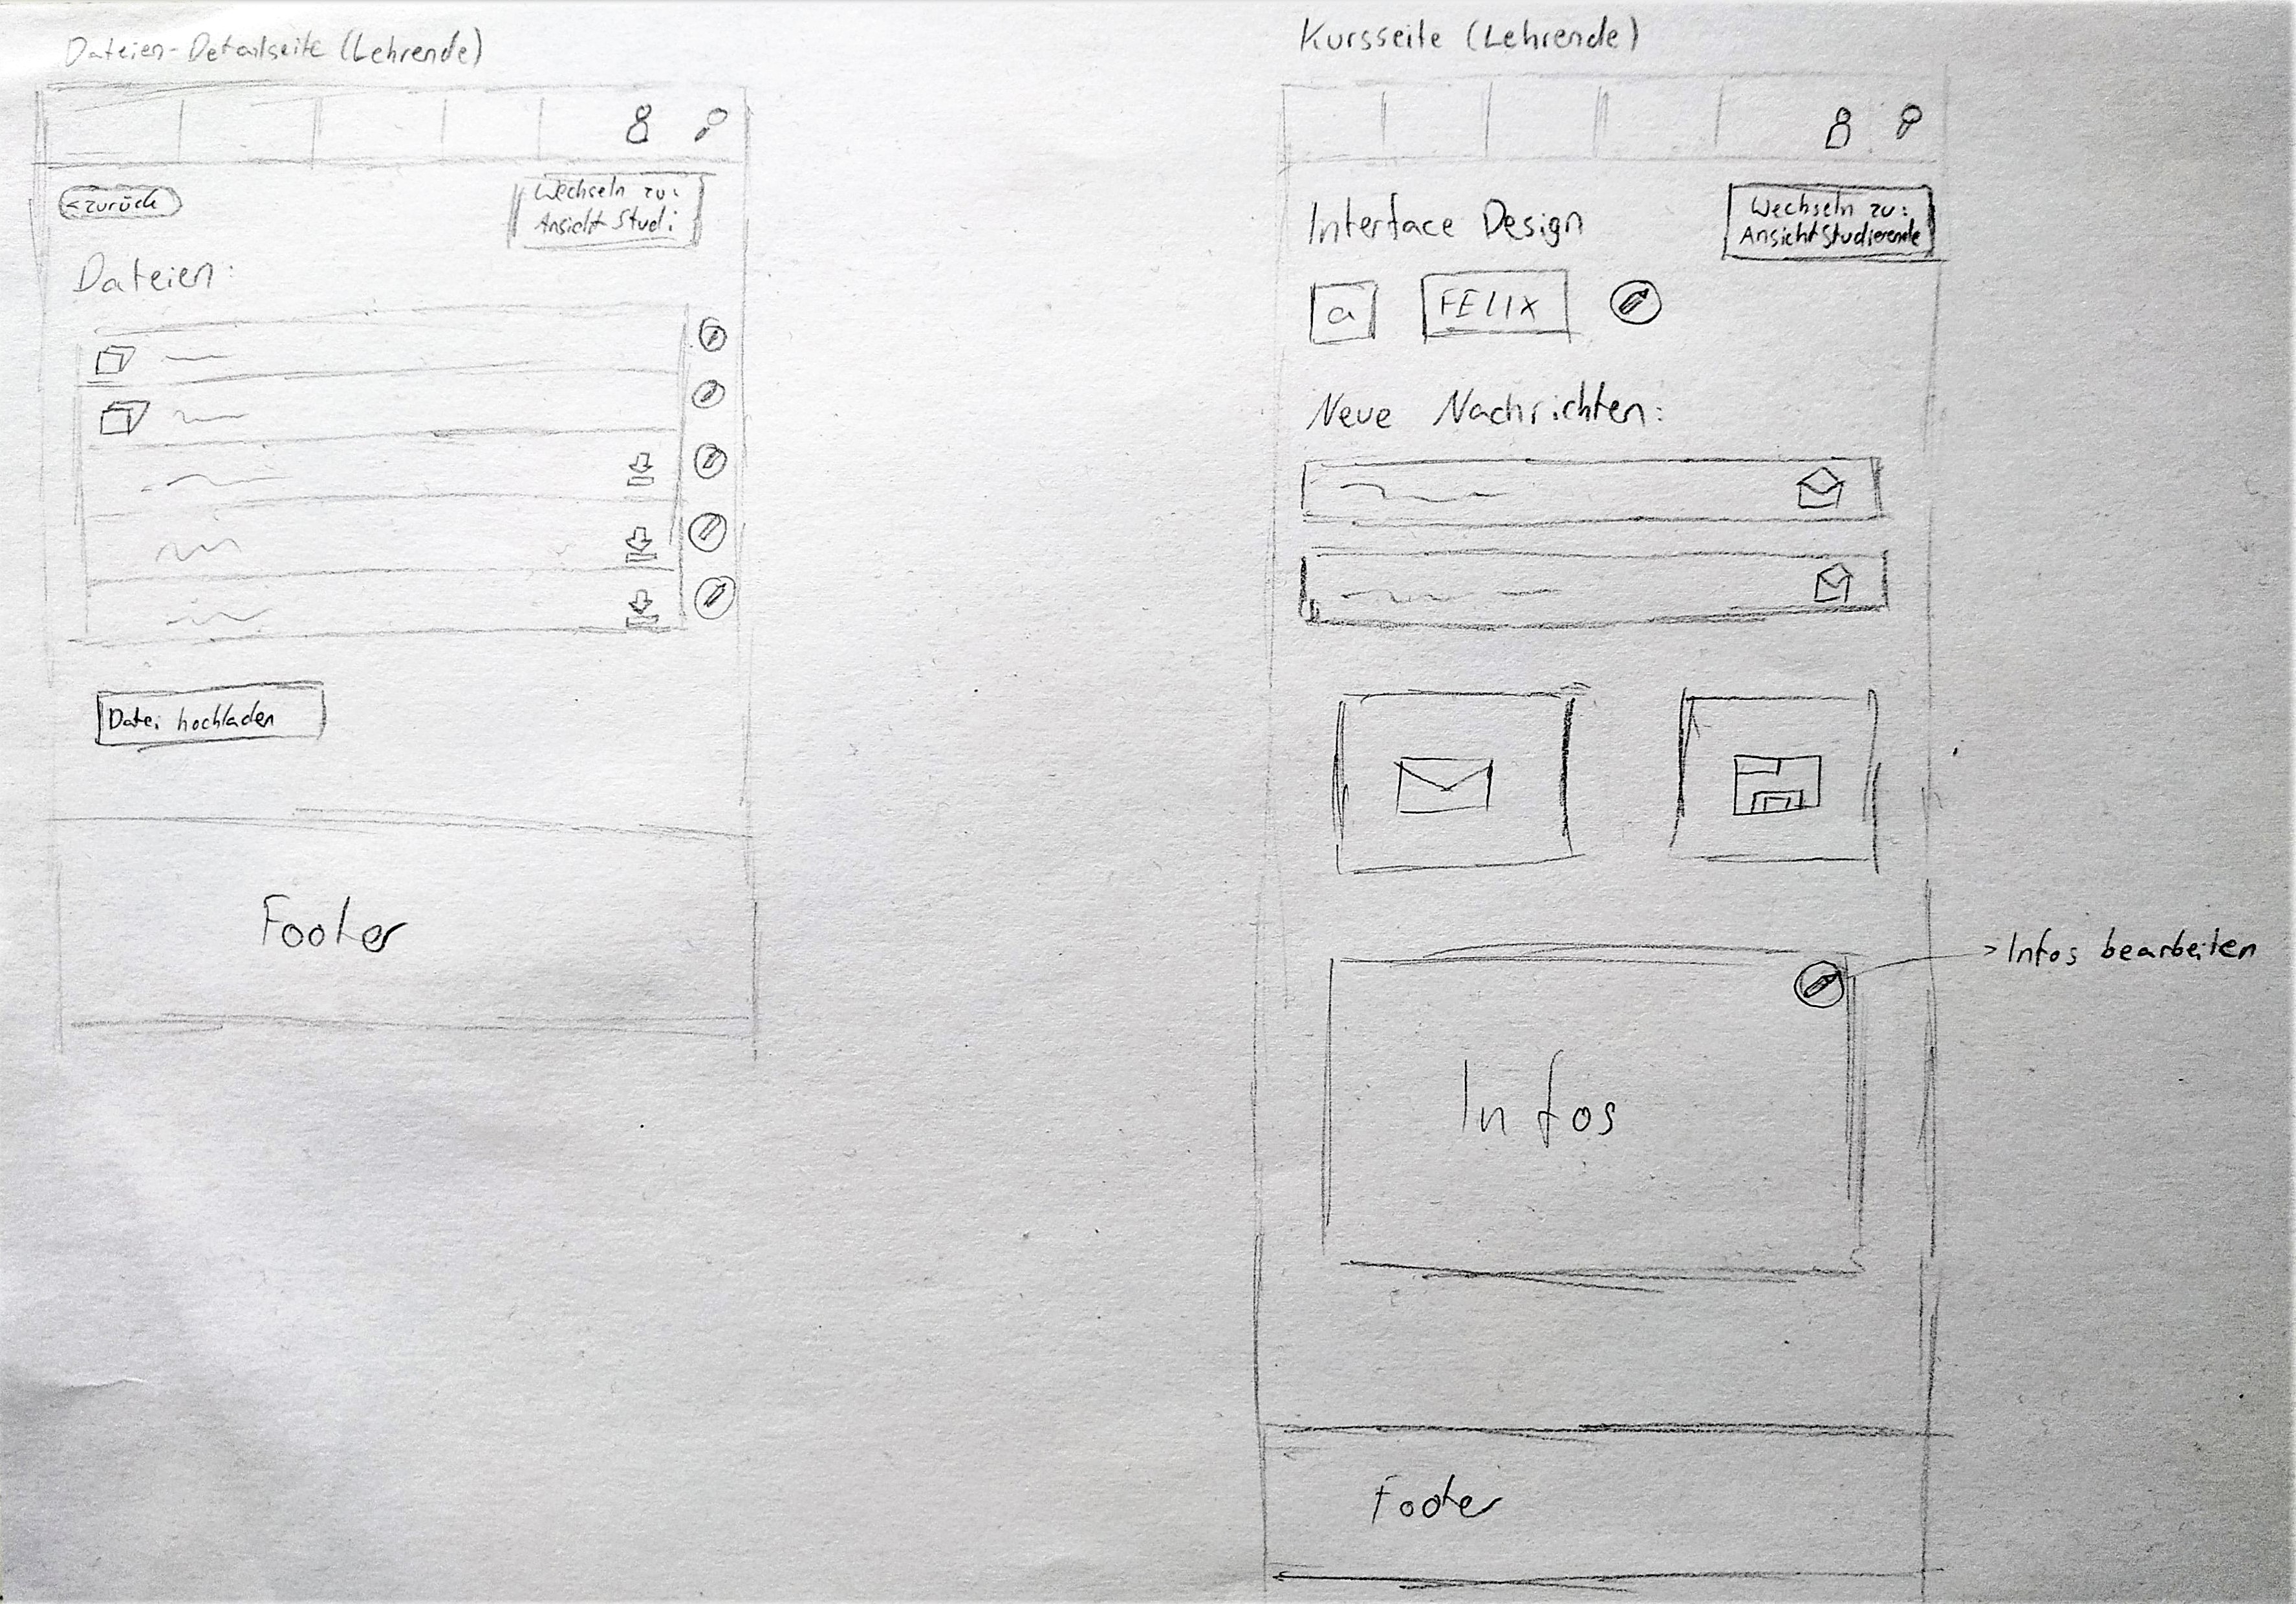 Dateien-Detailseite (Lehrende)
< zurück
Wechseln zu:
Ansicht Studi
Dateien:
Datei hochladen
Footer
Kursseite (Lehrende)
Interface Design
Wechseln zu:
Ansicht Studierende
a
FELIX
Neue Nachrichten:
> Infos bearbeiten
Infos
Footer